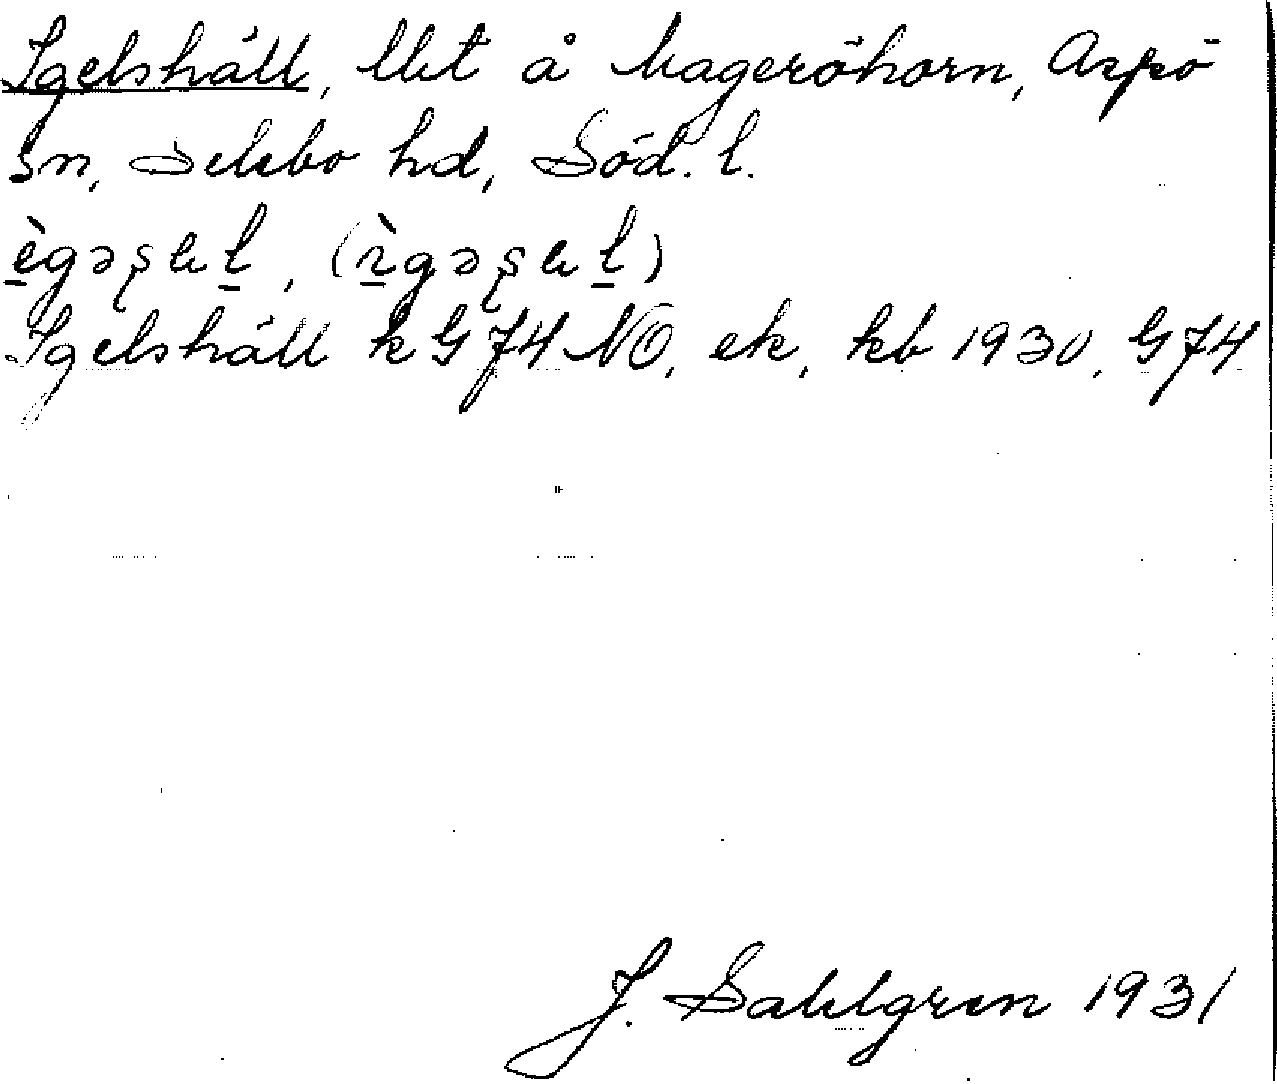 Igelshäll, lht å Mageröhorn, Aspö
sn, Selebo hd, Söd. l.
ègəʂɛl, (ìgəʂɛl)
Igelshäll k G74 NO, ek, kb 1930, G74
J. Sahlgren 1931